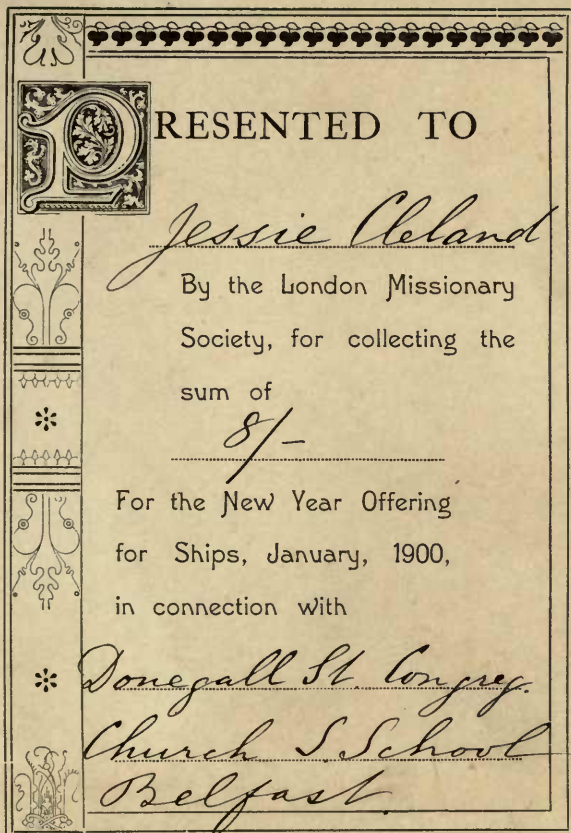 PRESENTED TO
Jessie Cleland
By the London Missionary
Society, for collecting the
sum of
8/-
For the New Year Offering
for Ships, January, 1900,
in connection with
Donegall St. Congreg.
Church S. School
Belfast.